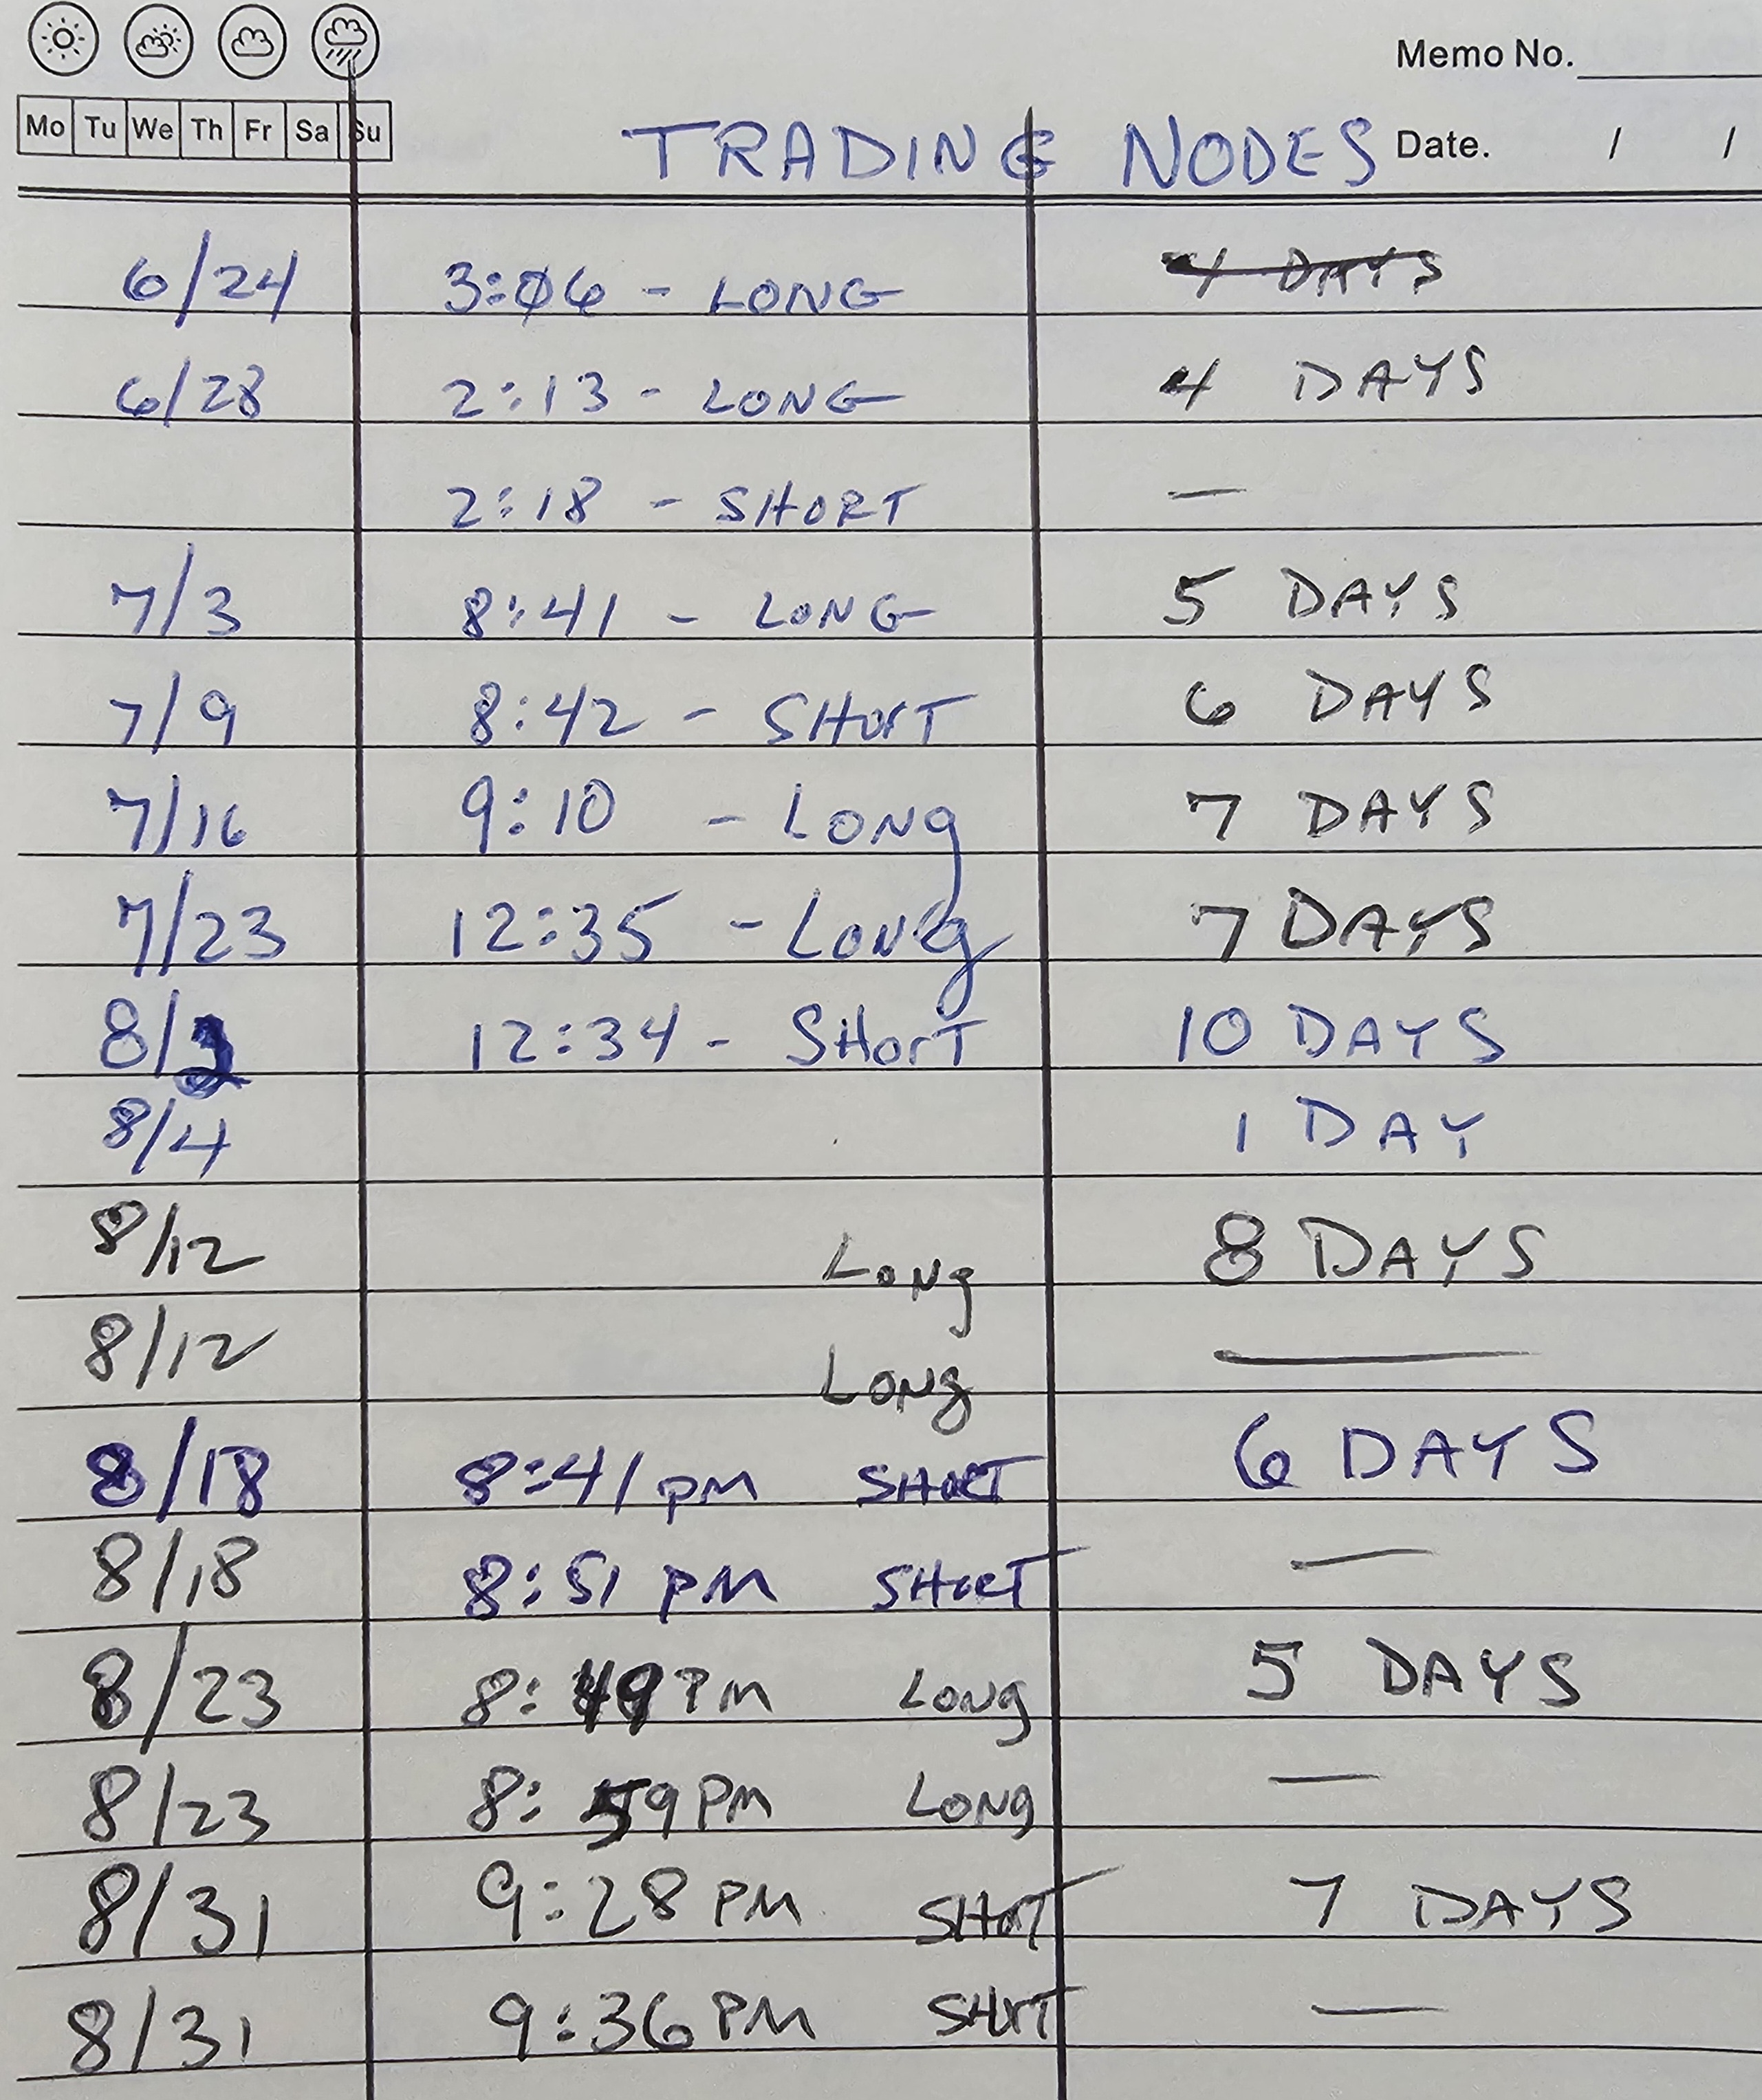 Memo No.
Mo Tu We Th Fr Sa Su
TRADING NODES Date. / /
6/24 3:06 - LONG 4 DAYS
6/28 2:13 - LONG 4 DAYS
2:18 - SHORT —
7/3 8:41 - LONG 5 DAYS
7/9 8:42 - SHORT 6 DAYS
7/16 9:10 - LONG 7 DAYS
7/23 12:35 - LONG 7 DAYS
8/2 12:34 - SHORT 10 DAYS
8/4 1 DAY
8/12 LONG 8 DAYS
8/12 LONG —
8/18 8:41 PM SHORT 6 DAYS
8/18 8:51 PM SHORT —
8/23 8:49 PM LONG 5 DAYS
8/23 8:59 PM LONG —
8/31 9:28 PM SHORT 7 DAYS
8/31 9:36 PM SHORT —